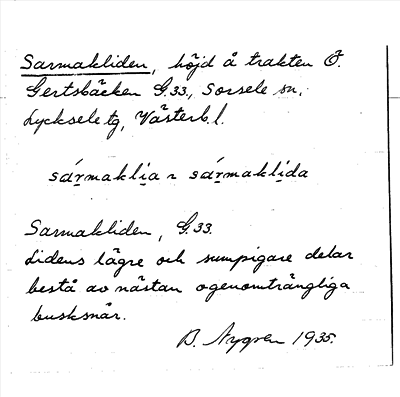 Sarmakliden, höjd å trakten Ö.
Gertsbäcken G.33., Sorsele sn,
Lycksele tg, Västerb. l.
sármaklia ~ sármaklida
Sarmakliden, G.33.
Lidens lägre och sumpigare delar
bestå av nästan ogenomträngliga
busksnår.
B. Nygren 1935.